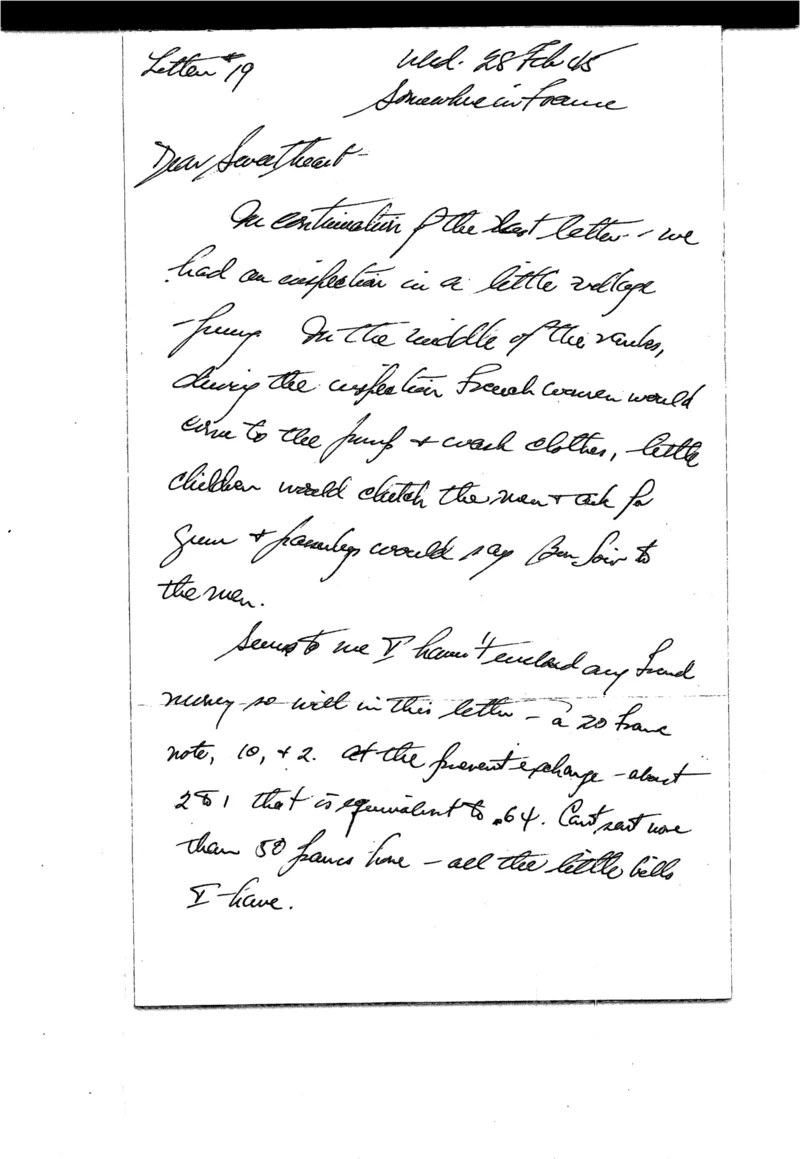 Letter #19
Wed. 28 Feb 45
Somewhere in France
Dear Sweetheart -
In continuation of the last letter - we
had an inspection in a little village
- funny. In the middle of the ranks,
during the inspection French women would
come to the pump & wash clothes, little
children would clutch the men & ask for
gum & passerbys would say Bon Soir to
the men.
Seems to me I haven't enclosed any French
money so will in this letter - a 20 franc
note, 10, & 2. At the present exchange - about
2 to 1 that is equivalent to .64. Can't send more
than 50 francs home - all the little bills
I have.